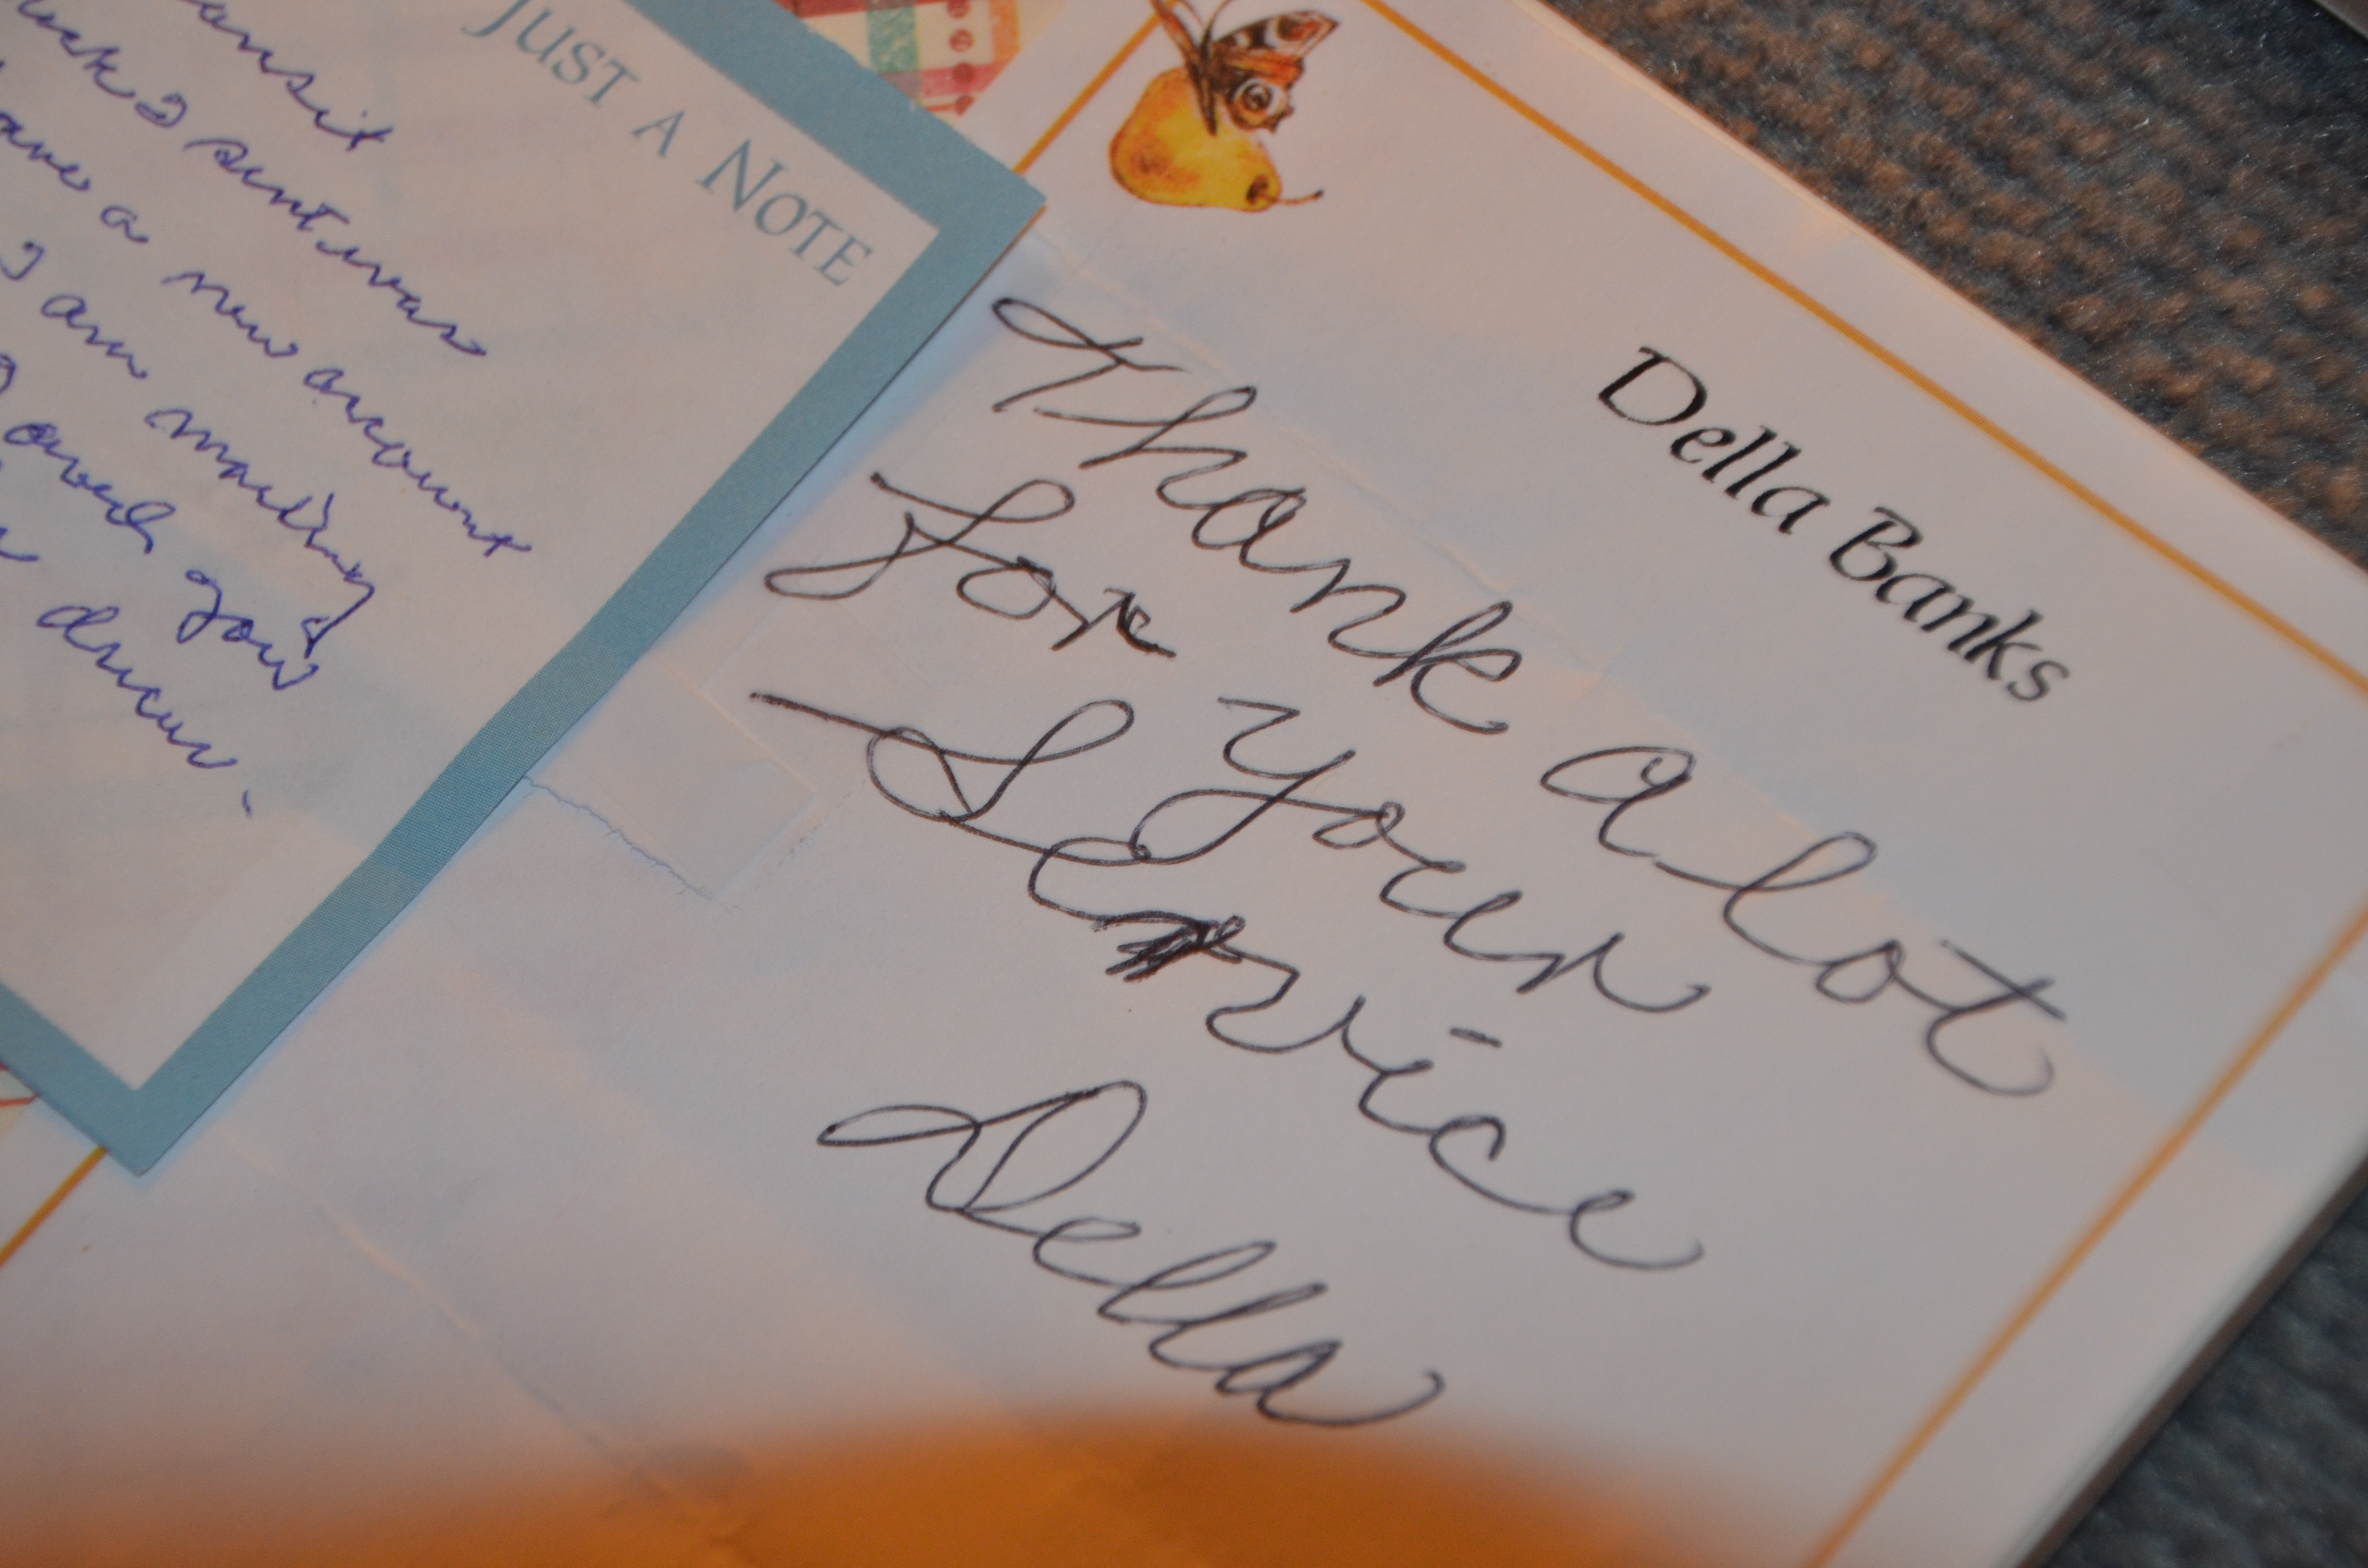 JUST A NOTE
ansit
I sent was
a new account
I am mailing
you
Della Banks
Thank a lot
for your
Service
Della